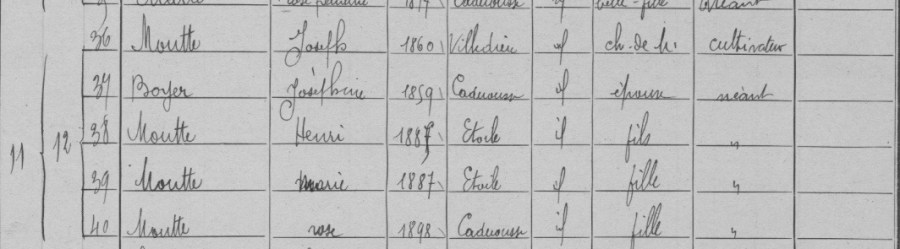 36 Moutte Joseph 1860 Villedieu if ch. de m. cultivateur
37 Boyer Joséphine 1859 Caderousse if épouse néant
11 12 38 Moutte Henri 1887 Etoile if fils "
39 Moutte marie 1887 Etoile if fille "
40 Moutte rose 1898 Caderousse if fille "